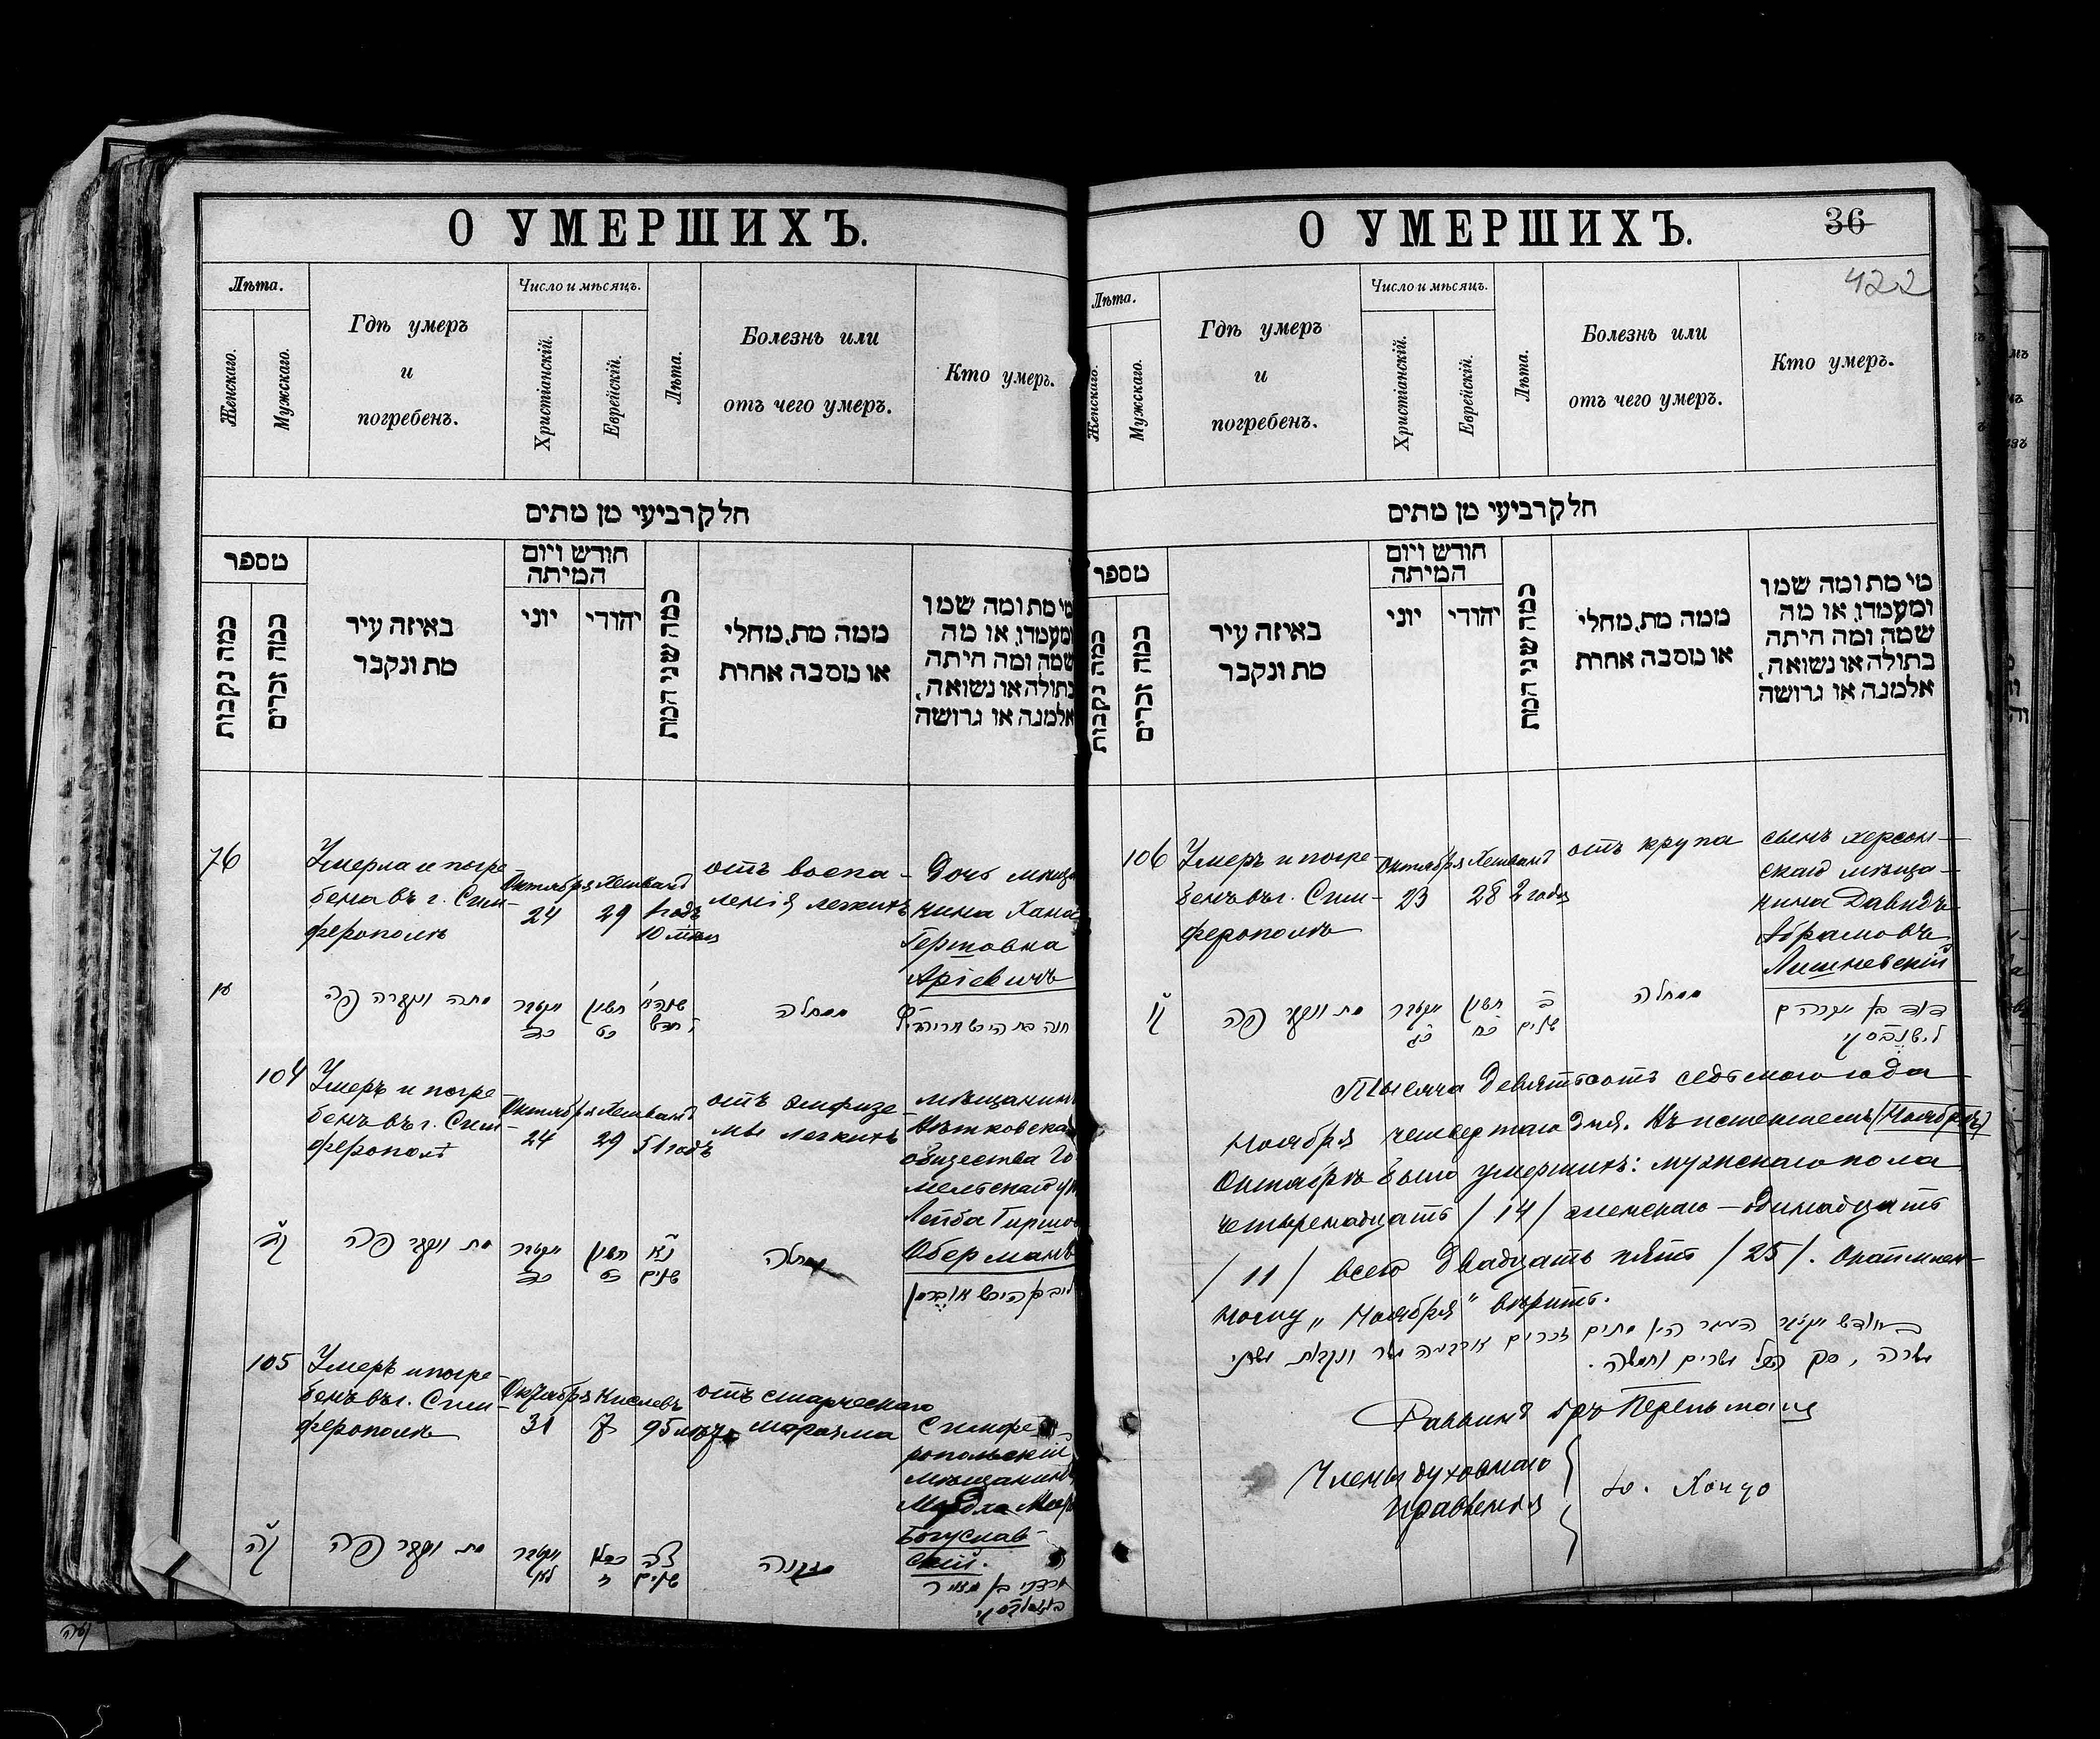 О УМЕРШИХЪ.
Лѣта.
Женскаго.
Мужскаго.
Гдѣ умеръ
и
погребенъ.
Число и мѣсяцъ.
Христіанскій.
Еврейскій.
Лѣта.
Болезнь или
отъ чего умеръ.
Кто умеръ.
חלק רביעי מן מתים
מספר
כמה נקבות
כמה זכרים
באיזה עיר
מת ונקבר
חודש ויום
המיתה
יוני
יהודי
כמה שני המת
ממה מת, מחלי
או מסבה אחרת
מי מת ומה שמו
ומעמדו, או מה
שמה ומה היתה
בתולה או נשואה,
אלמנה או גרושה
76
Умерла и погре-
бена въ г. Сим-
ферополѣ
Октября
24
Хешванъ
29
1 годъ
10 мѣс
отъ воспа-
ленія легкихъ
Дочь мѣща
нина Хана
Гершовна
Аріевичъ
מתה ונקברה פה
חשון
כט
ממחלה
104
Умеръ и погре-
бенъ въ г. Сим-
ферополѣ
Октября
24
Хешванъ
29
51 годъ
отъ эмфизе-
мы легкихъ
мѣщанинъ
Вѣтковскаго
общества Го
мельскаго у
Лейба Гиршов
Оберманъ
מת ונקבר פה
חשון
כט
נא
שנים
ממחלה
105
Умеръ и погре-
бенъ въ г. Сим-
ферополѣ
Октября
31
Кислевъ
7
95 лѣтъ
отъ старческаго
маразма
Симфе
ропольскій
мѣщанинъ
Богуслав-
скій.
מת ונקבר פה
כסלו
ז
צה
שנים
מזקנה
О УМЕРШИХЪ.
36
422
Лѣта.
Женскаго.
Мужскаго.
Гдѣ умеръ
и
погребенъ.
Число и мѣсяцъ.
Христіанскій.
Еврейскій.
Лѣта.
Болезнь или
отъ чего умеръ.
Кто умеръ.
חלק רביעי מן מתים
מספר
כמה נקבות
כמה זכרים
באיזה עיר
מת ונקבר
חודש ויום
המיתה
יוני
יהודי
כמה שני המת
ממה מת, מחלי
או מסבה אחרת
מי מת ומה שמו
ומעמדו, או מה
שמה ומה היתה
בתולה או נשואה,
אלמנה או גרושה
106
Умеръ и погре-
бенъ въ г. Сим-
ферополѣ
Октября
23
Хешванъ
28
2 года
отъ крупа
сынъ херсон-
скаго мѣща-
нина Давидъ
Абрамовъ
Лишневскій
מת ונקבר פה
חשון
כח
ב
שנים
ממחלה
דוד בן אברהם
Тысяча девятьсотъ седьмого года
Ноября четвертаго дня. Въ истекшемъ (Ноябрѣ)
Октябрѣ было умершихъ: мужскаго пола
четырнадцать /14/ женскаго – одинадцать
/11/ всего двадцать пять /25/.
ному „Ноября" вѣрить.
עשרה, סך הכל עשרים וחמשה.
Раввинъ Перельманъ
Члены духовнаго
правленія